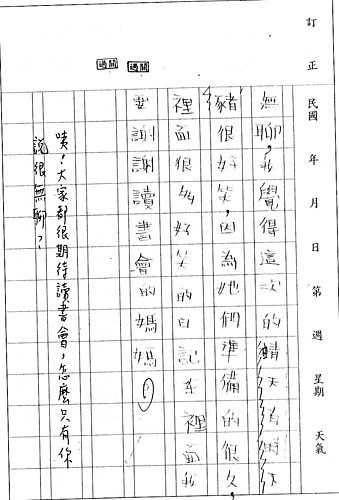 訂正
民國 年 月 日 第 週 星期 天氣
無聊,我覺得這次的
豬很好笑,因為她們準備的很久,
裡面很多好笑的日記在裡面我
要謝謝讀書會的媽媽。
過關 過關
咦!大家都很期待讀書會,怎麼只有你
說很無聊?